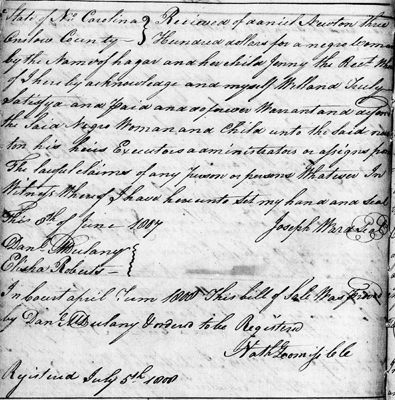 State of No Carolina } Received of daniel Newton three
Onslow County } Hundred dollars for a negro Woman
by the Name of hagar and her child Jenny the Rect
I hereby acknowledge and myself Well and Truly
Satisfyd and Paid and do forever Warrant and
the Said Negro Woman and Child unto the Said new
ton his heirs Executors administrators or assigns from
The lawful claims of any Person or persons Whatever In
Witness Whereof I have hereunto Set my hand and Seal
This 8th of June 1807 Joseph Ward Seal
Danl MDulany
Elisha Roberts
In court april Term 1808 This bill of Sale Was
by Danl MDulany & orderd to be Registered
Nath Loomiss Clk
Registered July 5th 1808